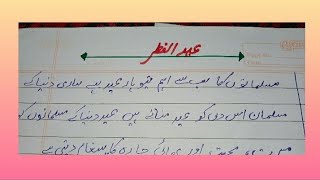 عید الفطر
مسلمانوں کا سب سے اہم تہوار عید ہے ساری دنیا کے
مسلمان اس دن کو عید مناتے ہیں عید دنیا کے مسلمانوں کو
محبت اور بھائی چارہ کا پیغام دیتی ہے